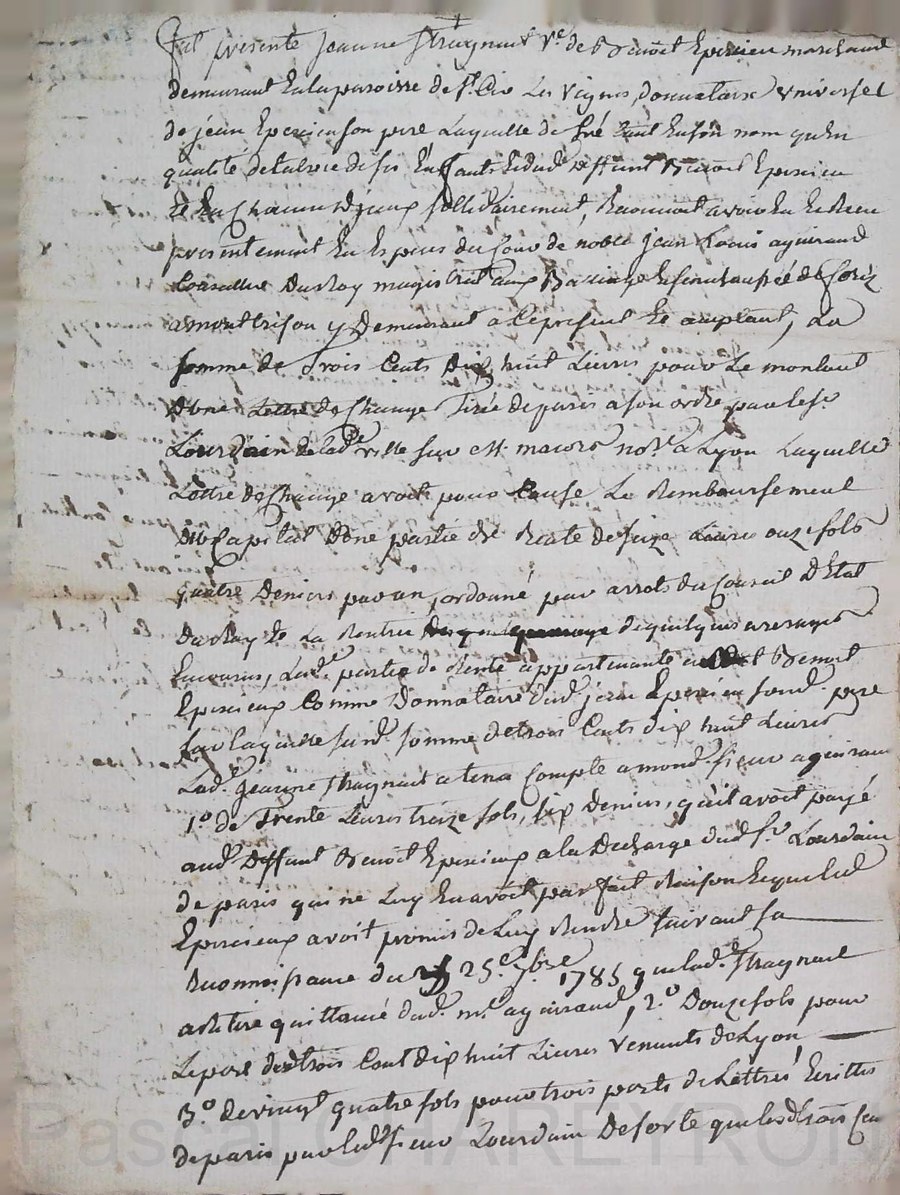 fut presente Jeanne Thragnat Ve. de Benoit Epercieu marchand
demeurant En la paroisse de St. Cir Les Vignes Donnataire Universel
de jean Epercieu son pere Laquelle de gré tant En son nom qu'En
qualité de tutrice de ses Enfants & dud. deffunt Benoit Epercieu
et En Chacun d'jceux sollidairement, Reconnoit avoir Eu & Receu
presentement En Especes du Cour de noble jean Louis aguiraud
Conseiller du Roy magistrat aux Bailliage & senechaussée de forêz
a montbrison y Demeurant a Ce present & acceptant, La
somme de Trois Cents Dix huit Livres pour Le montant
D'une Lettre de Change Tirée de paris a son ordre par le sr.
Lourdain de lad. ville sur mr. nore. a Lyon Laquelle
Lettre de Change avoit pour Cause Le Remboursement
du Capital D'une partie de Rente de seize Livres onze sols
quatre Deniers par an, ordonné par arrets du Conseil D'Etat
du Roy & La Rentrée de quelques arerages
Encourus, Lade. partie de Rente appartenante Benoit
Epercieux Comme Donnataire dud. jean Epercieu son d. pere
Sur laquelle susd. somme de trois Cents dix huit Livres
Lade. Jeanne Thragnat a tenu Compte a mond. sieur aguiraud
1.° de Trente Livres treize sols, six Deniers, qu'il avoit payé
aud. Deffunt Benoit Epercieux a la Decharge dud. sr. Lourdain
de paris qui ne Luy En avoit pas fait Raison & que led.
Epercieux avoit promis de Luy Rendre suivant sa
Reconnoissance du 25e. 7bre 1785 que lade. Thragnat
a Retiré quittancé dud. mr. aguiraud, 2.° Douze sols pour
Le port des trois Cent dix huit Livres venants de Lyon,
3.° De vingt quatre sols pour trois ports de Lettres Ecrittes
de paris par led. sieur Lourdain De sorte que les trois
Pascal CHAREYRON